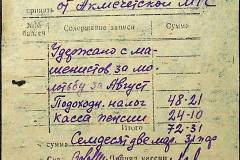 принять от Акмечетской МТС
№№ бал. сч. Содержание записи Сумма
Удержано с ма-
шинистов за мо-
лотьбу за Август
Подоходн. налог 48-21
касса пенсии 24-10
Итого 72-31
Семдесят две мар. 31